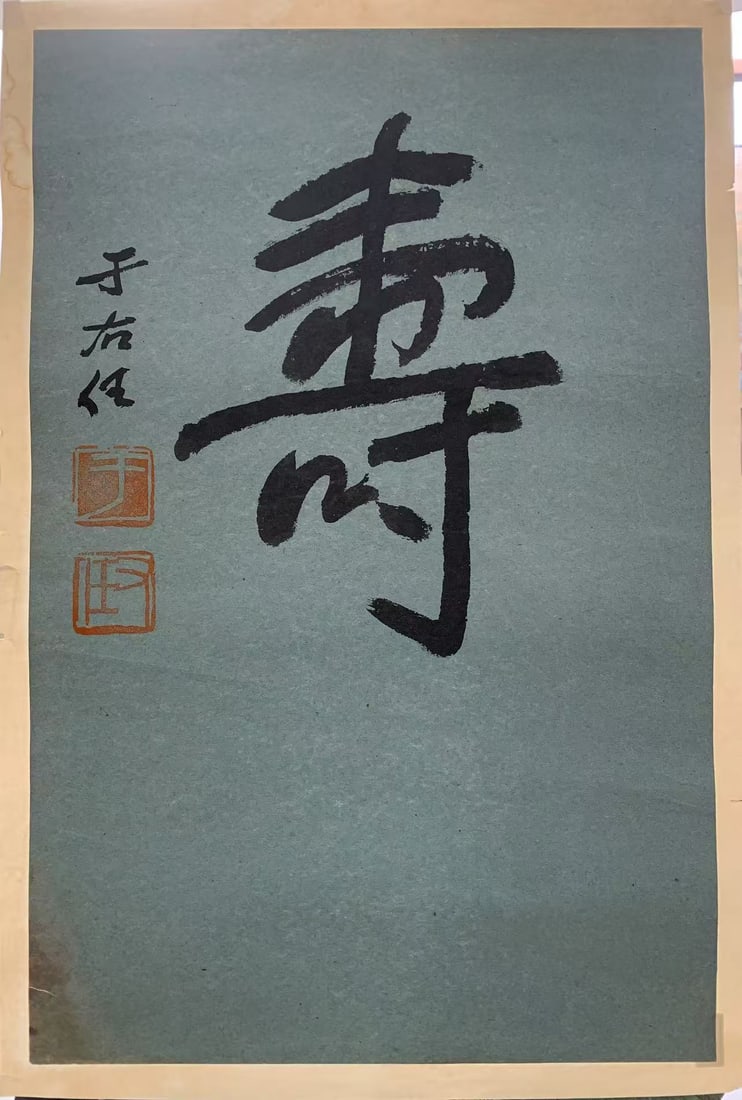 壽
于右任